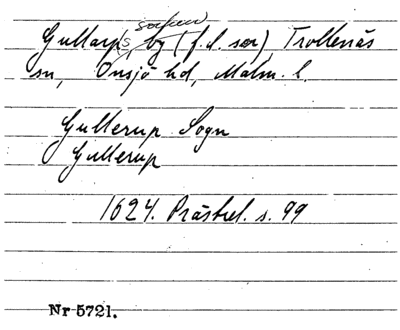 socken
Gullarps by (f.d. sn) Trollenäs
sn, Onsjö hd, Malm. l.
Gullerup Sogn
Gullerup
1624. Prästrel. s. 99
Nr 5721.